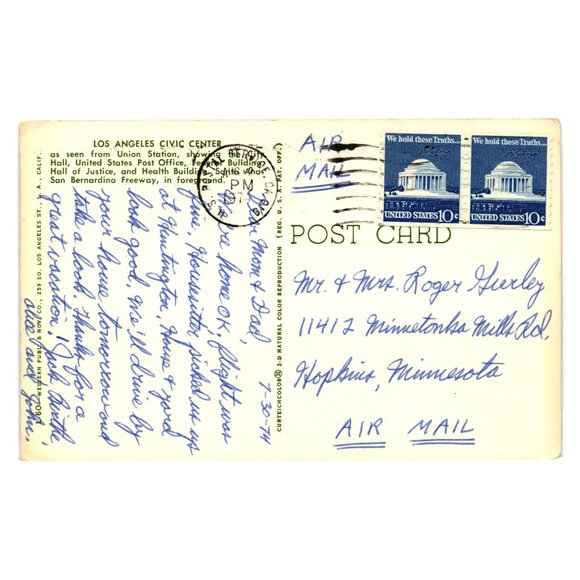 LOS ANGELES CIVIC CENTER
as seen from Union Station, showing the City
Hall, United States Post Office, Federal Building,
Hall of Justice, and Health Building. Santa Ana-
San Bernardino Freeway, in foreground.
AIR
MAIL
We hold these Truths...
UNITED STATES 10c
We hold these Truths...
UNITED STATES 10c
U.S. POSTAL SERVICE
PM
197
POST CARD
Mr. & Mrs. Roger Gurley
11412 Minnetonka Mills Rd.
Hopkins, Minnesota
AIR MAIL
7-30-74
Mom & Dad,
home OK, flight was
fine, Housesitter picked us up
at Huntington, House & yard
look good. We'll drive by
your house tomorrow and
take a look. Thanks for a
great vacation,
and John.
WESTERN PUBLISHING & NOV. CO., 259 SO. LOS ANGELES ST., L. A., CALIF.
CURTEICHCOLOR 3-D NATURAL COLOR REPRODUCTION (REG. U. S. A. PAT. OFF.)